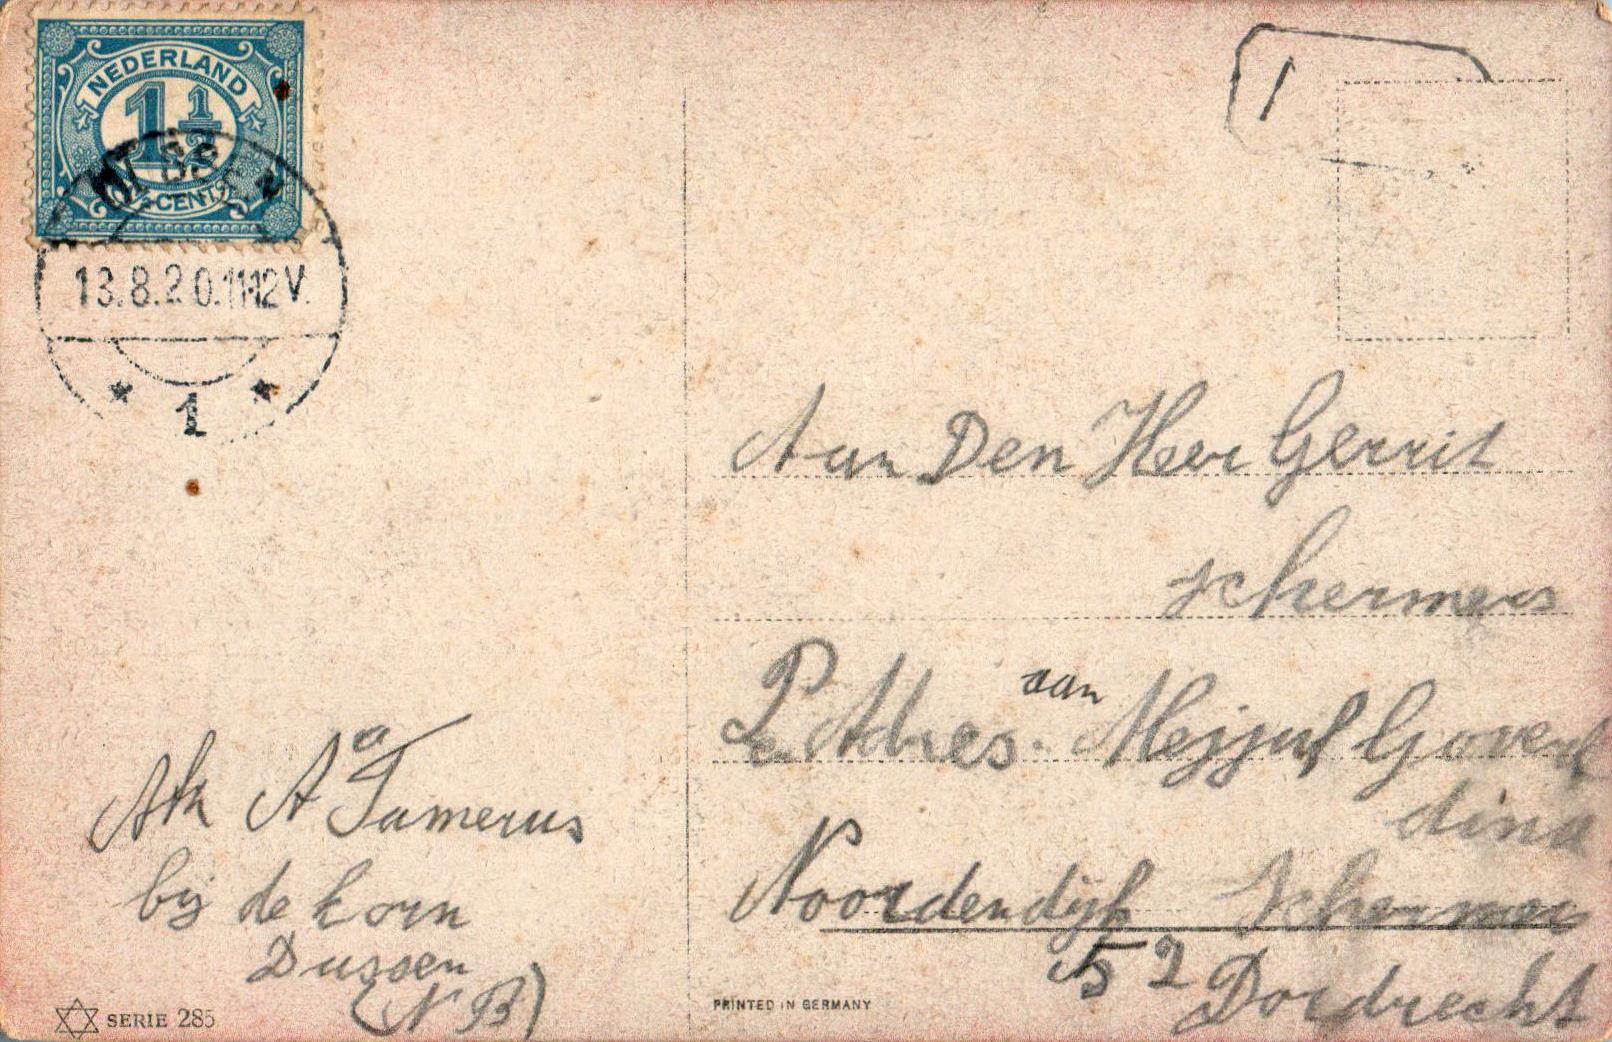 NEDERLAND
1½
CENT
13.8.20.11-12V.
1
1
Aan Den Heer Gerrit
schermers
P. Adres. aan Mejjuf Goverd
dina
Noordendijk Schermers
52 Dordrecht
Afz A a Tamerus
bij de korn
Dussen
(N B)
SERIE 285
PRINTED IN GERMANY